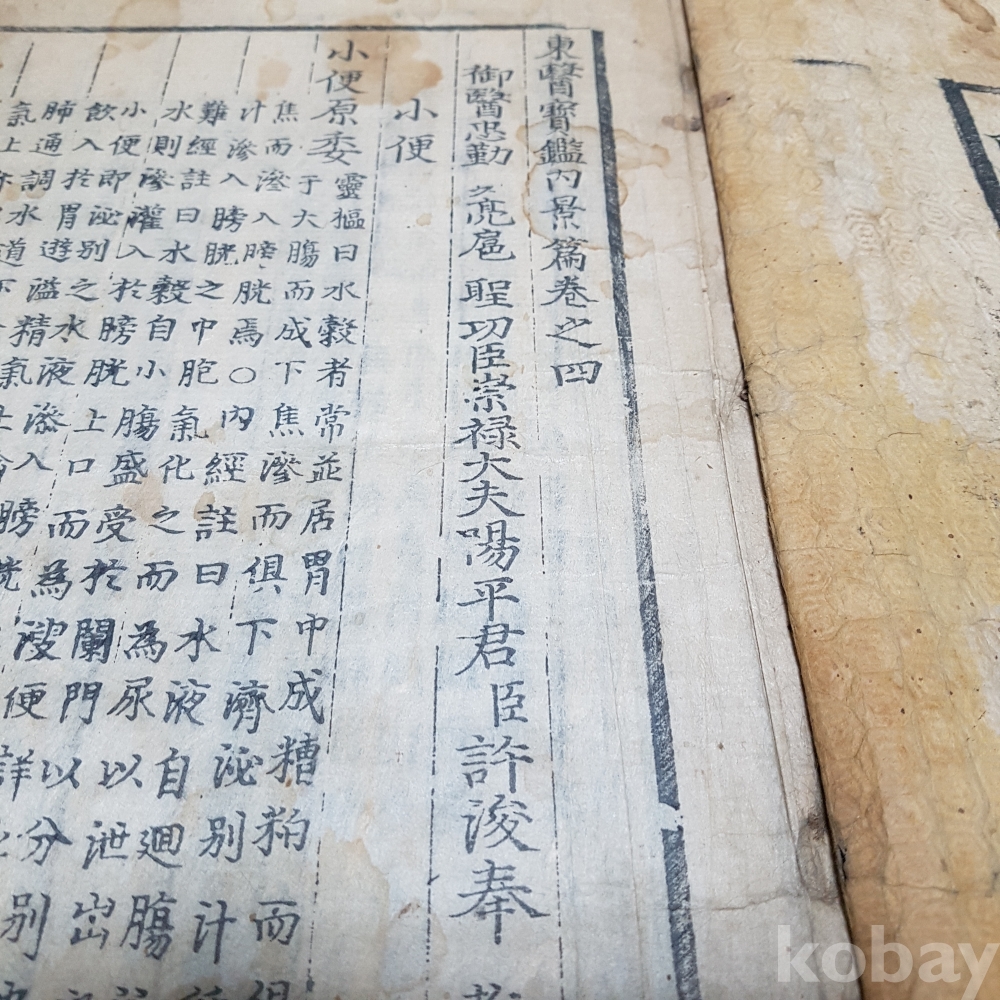 東醫寶鑑內景篇卷之四
御醫忠勤亮扈 聖功臣崇祿大夫陽平君臣許浚奉
小便
小便原委 靈樞曰水穀者常並居胃中成糟粕而俱
于大膓而成下焦滲而俱下濟泌別汁
焦而滲入膀胱焉○內經註曰水液自迴膓
汁滲入膀胱之中胞氣化之而為尿以泄出
難經註曰水穀自小膓盛受於闌門以分別
水則滲灌入於膀胱上口而為溲便詳
小便即泌別之水液滲入膀胱
飲入於胃遊溢精氣
肺通調水道下
氣上